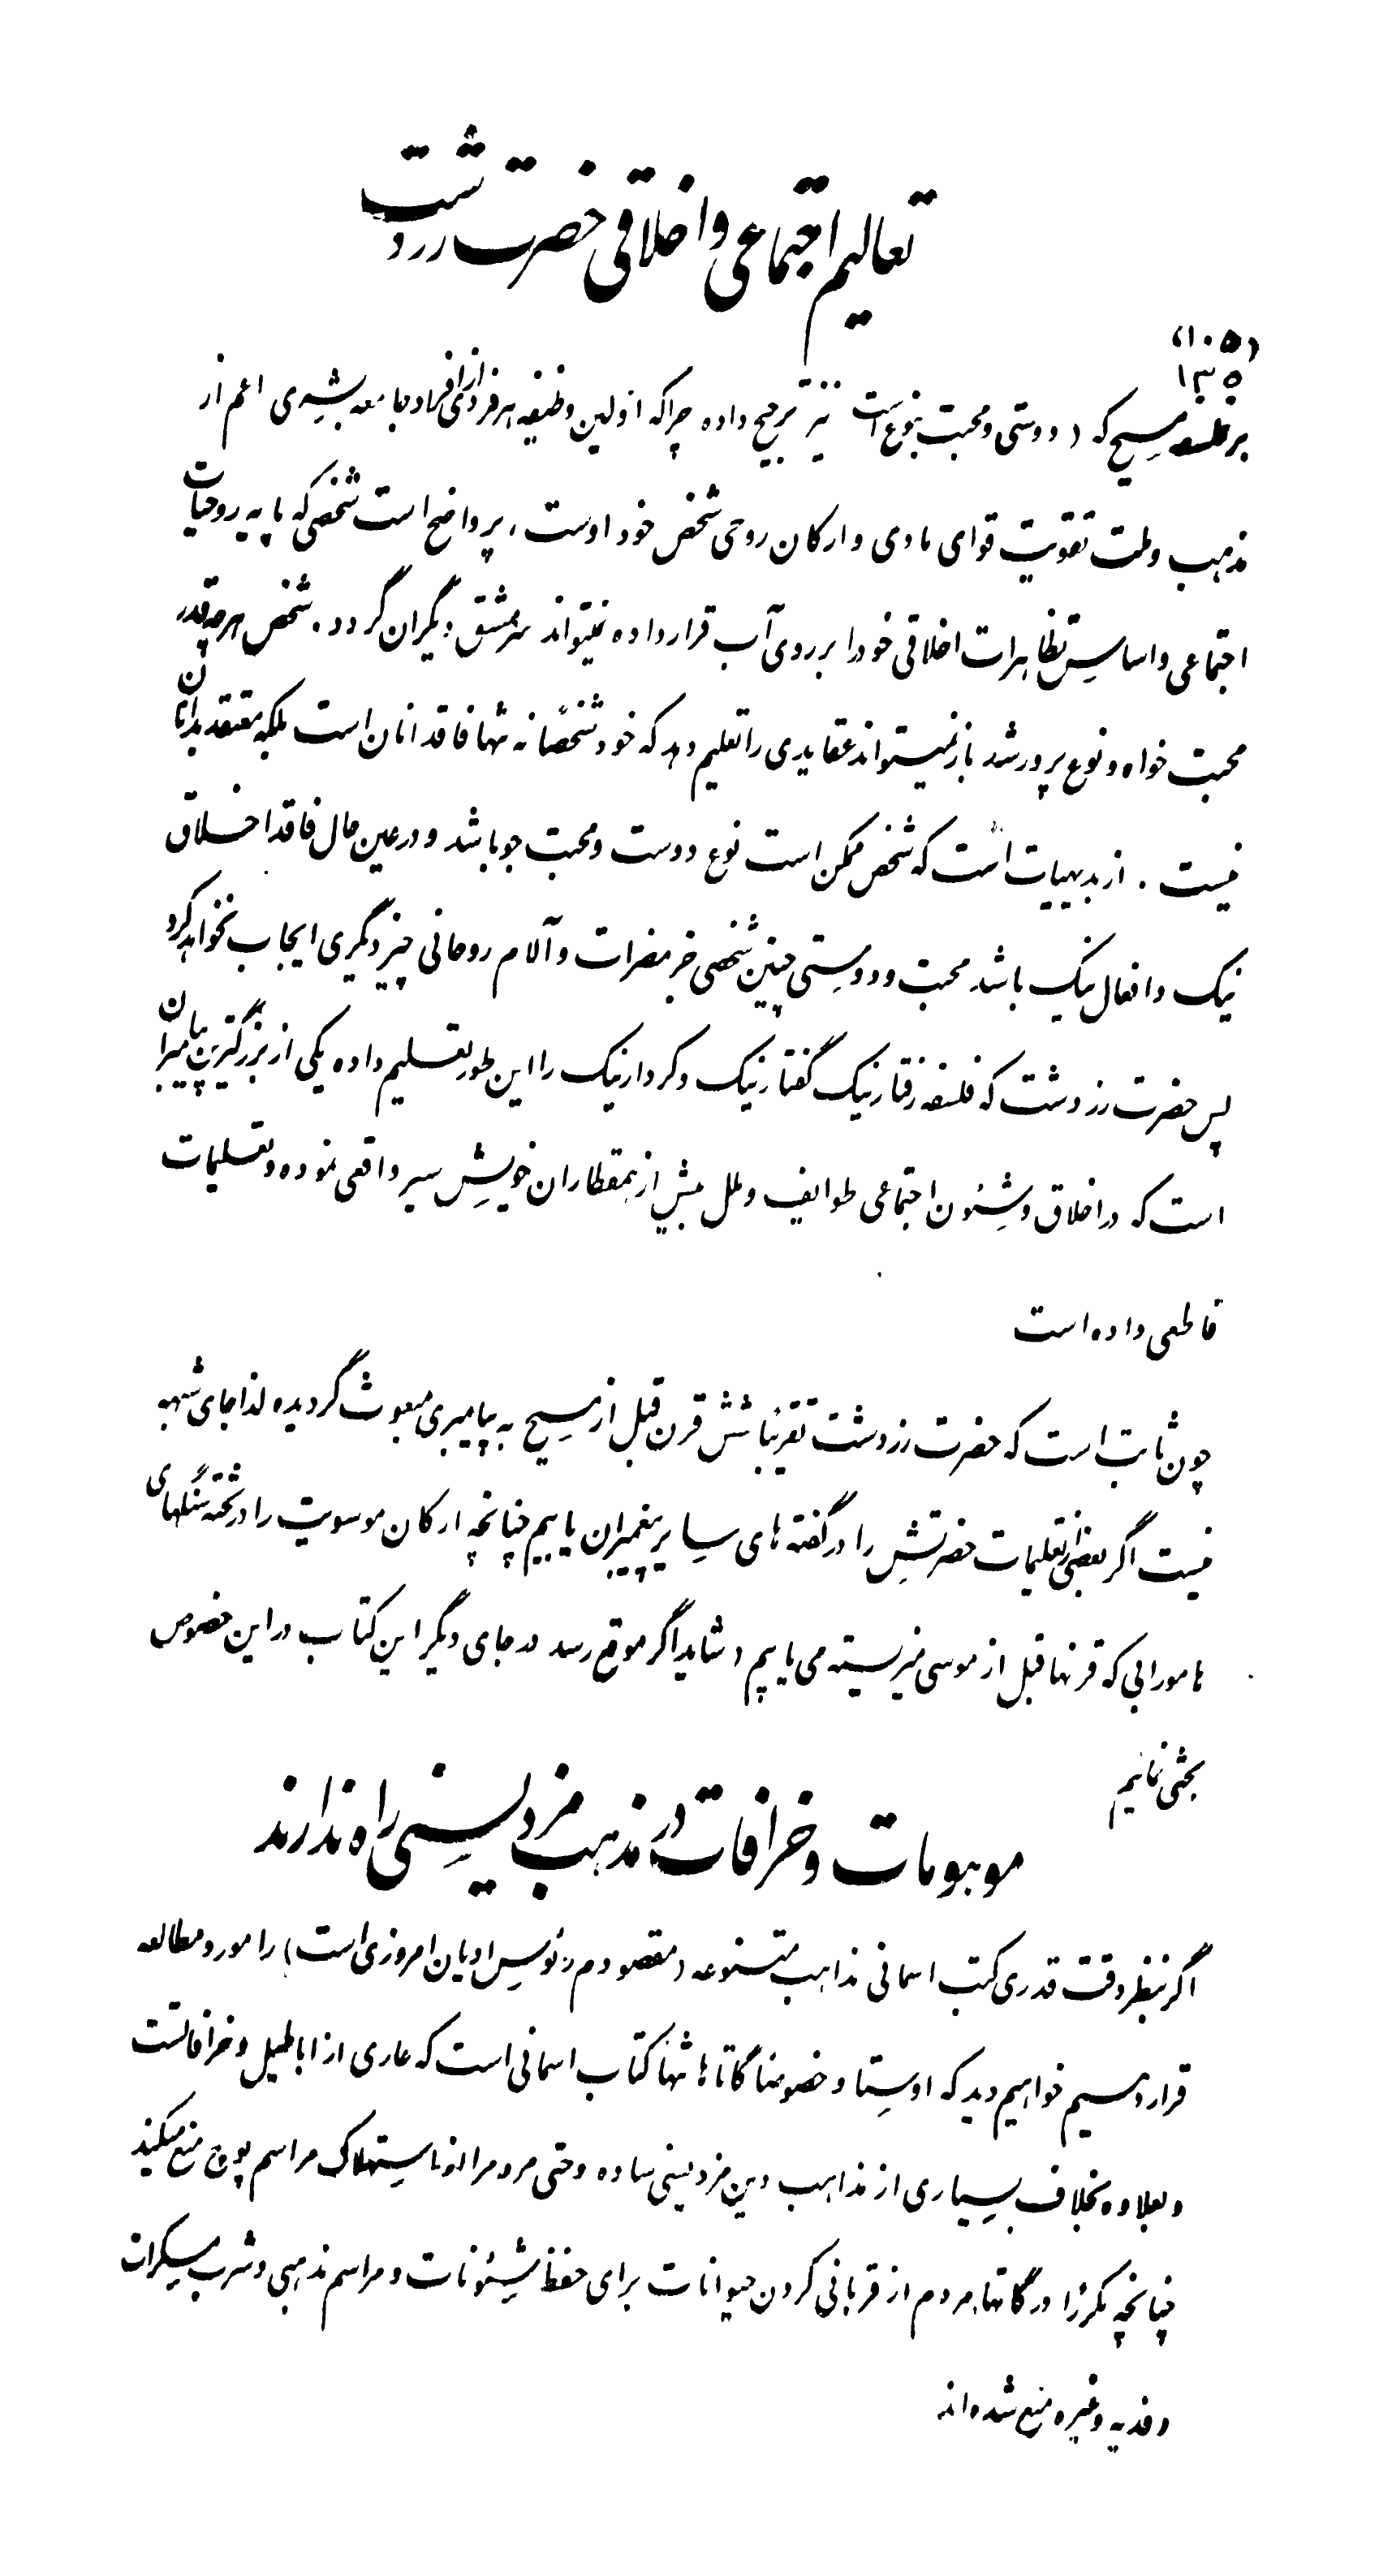 تعالیم اجتماعی و اخلاقی حضرت زردشت
(۱۰۵)
۱۳۵
بر فلسفه مسیح که (دوستی و محبت بنوع است نیز ترجیح داده چرا که اولین وظیفه هر فردی از افراد جامعه بشری اعم از
مذهب و ملت تقویت قوای مادی و ارکان روحی شخص خود اوست، پر واضح است شخصی که پایه روحیات
اجتماعی و اساس تظاهرات اخلاقی خود را بر روی آب قرار داده نمیتواند سرمشق دیگران گردد. شخص هر چقدر
محبت خواه و نوع پرور شد باز نمیتواند عقایدی را تعلیم دهد که خود شخصاً نه تنها فاقد انان است بلکه معتقد بدانان
نیست. از بدیهیات است که شخص ممکن است نوع دوست و محبت جو باشد و در عین حال فاقد اخلاق
نیک و افعال نیک باشد محبت و دوستی چنین شخصی جز مضرات و آلام روحانی چیز دیگری ایجاب نخواهد کرد
پس حضرت زردشت که فلسفه رفتار نیک گفتار نیک و کردار نیک را این طور تعلیم داده یکی از بزرگترین پیامبران
است که در اخلاق و شئون اجتماعی طوایف و ملل بیش از همقطاران خویش سیر واقعی نموده و تعلیمات
قاطعی داده است
چون ثابت است که حضرت زردشت تقریباً شش قرن قبل از مسیح به پیامبری مبعوث گردیده لذا جای شبهه
نیست اگر بعضی از تعلیمات حضرتش را در گفته های سایر پیغمبران یابیم چنانچه ارکان موسویت را در تخته سنگهای
هامورابی که قرنها قبل از موسی میزیسته می یابیم (شاید اگر موقع رسد در جای دیگر این کتاب در این خصوص
بحثی نمائیم
موهومات و خرافات در مذهب مزدیسنی راه ندارند
اگر بنظر دقت قدری کتب اسمانی مذاهب متنوعه (مقصودم رئوس ادیان امروزی است) را مورد مطالعه
قرار دهیم خواهیم دید که اوستا و خصوصا گاتاها تنها کتاب اسمانی است که عاری از اباطیل و خرافاتست
و بعلاوه بخلاف بسیاری از مذاهب دین مزدیسنی ساده و حتی مردم را از استهلاک مراسم پوچ منع میکند
چنانچه مکرراً در گاتها مردم از قربانی کردن حیوانات برای حفظ شئونات و مراسم مذهبی و شرب مسکرات
و فدیه و غیره منع شده اند